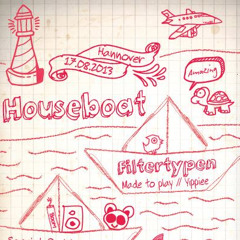 Hannover
17.08.2013
Amazing
Houseboat
Filtertypen
Made to play // Yippiee